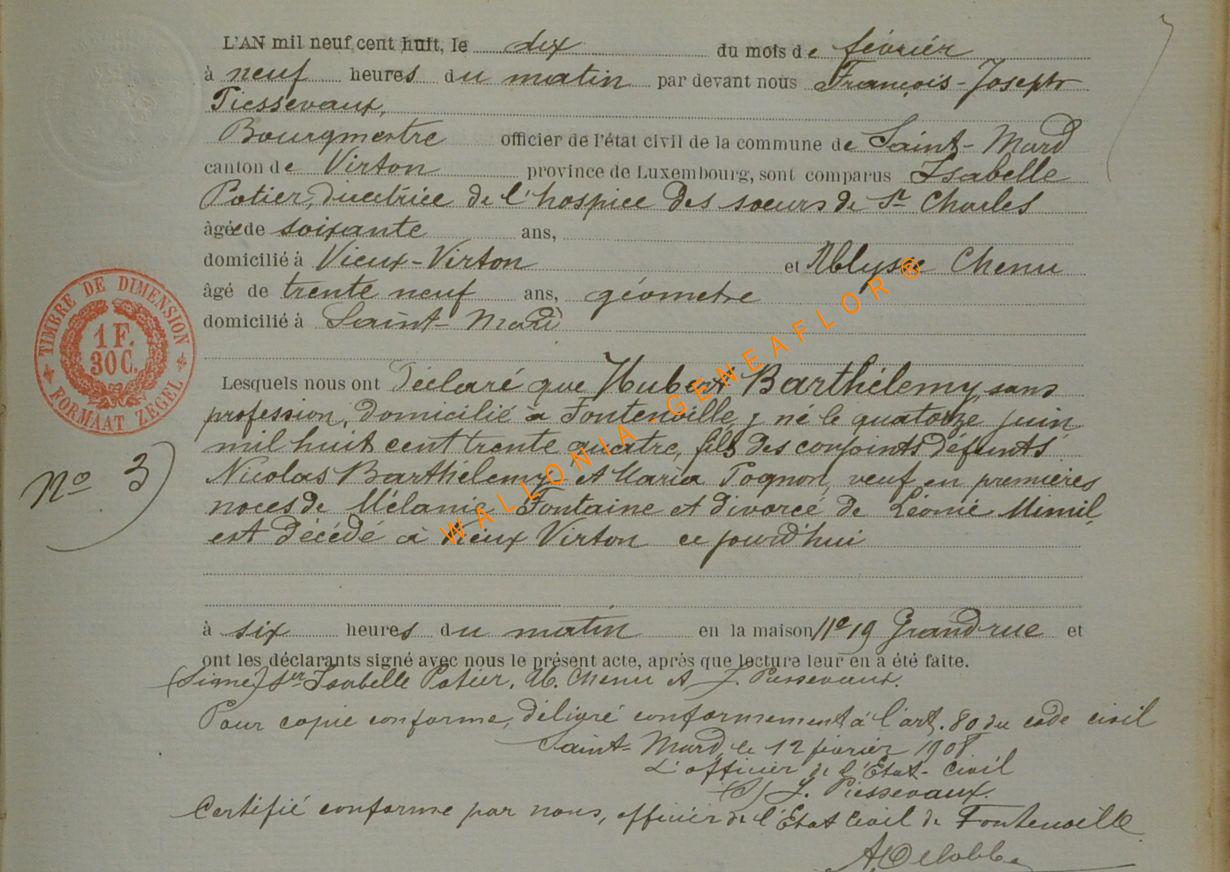 L'AN mil neuf cent huit, le dix du mois de février
à neuf heures du matin par devant nous François-Joseph
Piessevaux,
Bourgmestre officier de l'état civil de la commune de Saint-Mard
canton de Virton province de Luxembourg, sont comparus Isabelle
Potier, directrice de l'hospice des soeurs de St Charles
âgée de soixante ans,
domicilié à Vieux-Virton et Ulysse Chenu
âgé de trente neuf ans, géometre
domicilié à Saint-Mard
TIMBRE DE DIMENSION
1 F.
30 C.
FORMAAT ZEGEL
Lesquels nous ont déclaré que Hubert Barthélemy, sans
profession, domicilié à Fontenoille, y né le quatorze juin
mil huit cent trente quatre, fils des conjoints défunts
No 3
Nicolas Barthélemy et Maria Pognon, veuf en premières
noces de Mélanie Fontaine et divorcé de Léonie Mimil,
est décédé à Vieux Virton ce jourd'hui
à six heures du matin en la maison No 19 Grand rue et
ont les déclarants signé avec nous le présent acte, après que lecture leur en a été faite.
(Signé) Sr Isabelle Potier, U. Chenu et J. Piessevaux.
Pour copie conforme, déligré conformement à l'art. 80 du code civil
Saint-Mard, le 12 février 1908
L'officier de l'Etat-Civil
(S) J. Piessevaux.
Certifié conforme par nous, officier de l'Etat Civil de Fontenoille
WALLONIA-GENEAFLOR®